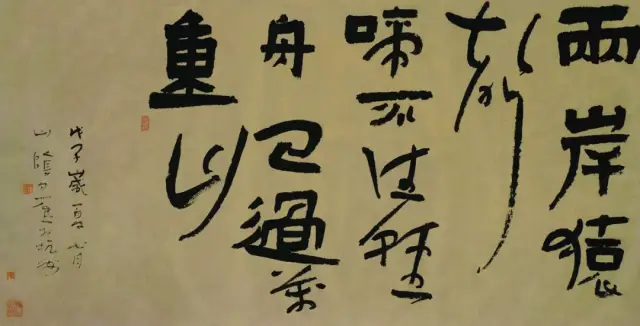 兩岸猿
聲
啼不住輕
舟已過萬
重山
戊子歲夏月
山陰